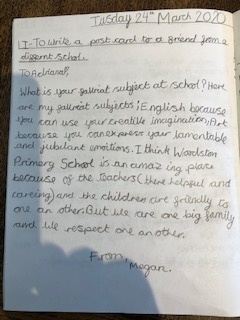 Tuesday 24th March 2020
LI-To write a post card to a friend from a
differnt school.
To Adriana,
What is your favirat subject at school? Here
are my favirat subjects; English because
you can use your creative imagination, Art
because you can express your lamentable
and jubilant emotions. I think Wordston
Primary School is an amazing place
because of the teachers (there helpful and
careing) and the children are friendly to
one an other. But we are one big family
and we respect one an other.
From,
Megan.